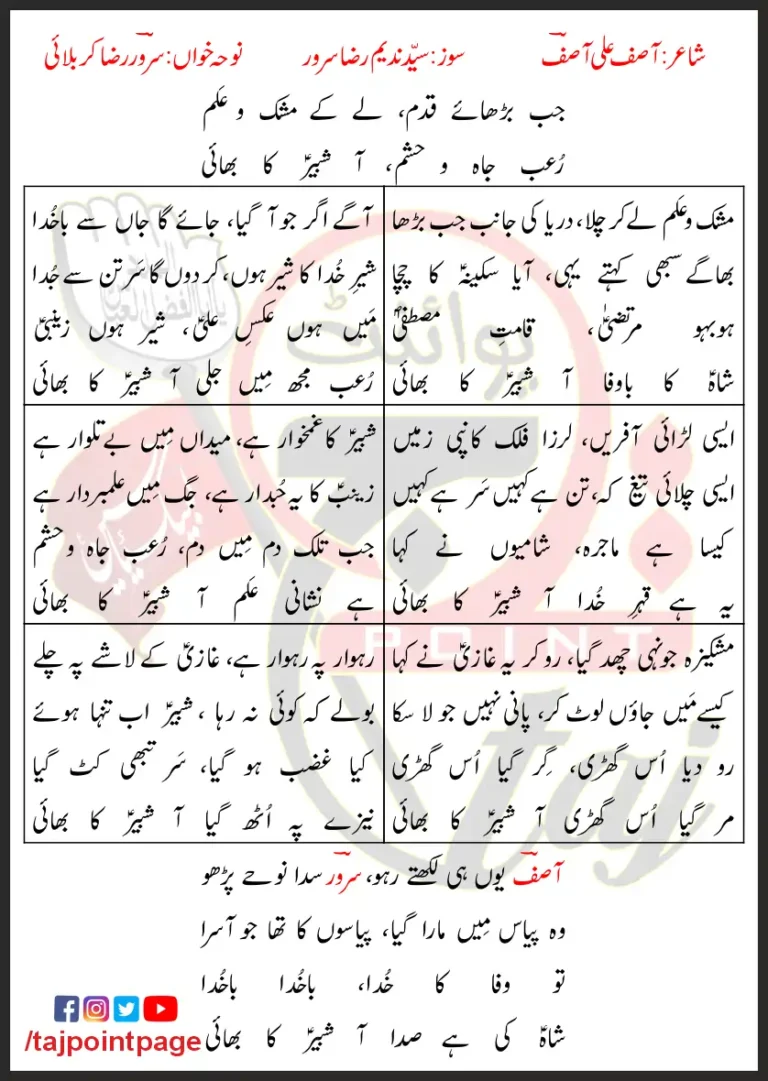 شاعر: آصف علی آصفؔ سوز: سیّد ندیم رضا سرور نوحہ خواں: سرورؔ رضا کربلائی
جب بڑھائے قدم، لے کے مشک و عَلَم
رُعب جاہ و حشم، آ شبیرؑ کا بھائی
مشک و عَلَم لے کر چلا، دریا کی جانب جب بڑھا
بھاگے سبھی کہتے یہی، آیا سکینہؑ کا چچا
ہوبہو مرتضیٰؑ، قامتِ مصطفیٰؐ
شاہؑ کا باوفا آ شبیرؑ کا بھائی
آگے اگر جو آ گیا، جائے گا جاں سے باخُدا
شیرِ خُدا کا شیر ہوں، کر دوں گا سَر تن سے جُدا
مَیں ہوں عکسِ علیؑ، شیر ہوں زینبیؑ
رُعب مجھ مِیں جلی آ شبیرؑ کا بھائی
ایسی لڑائی آفریں، لرزا فلک کانپی زمیں
ایسی چلائی تیغ کہ، تن ہے کہیں سَر ہے کہیں
کیسا ہے ماجرہ، شامیوں نے کہا
یہ ہے قہرِ خُدا آ شبیرؑ کا بھائی
شبیرؑ کا غمخوار ہے، میداں مِیں بے تلوار ہے
زینبؑ کا یہ حُبدار ہے، جگ مِیں علمبردار ہے
جب تلک دم مِیں دم، رُعب جاہ و حشم
ہے نشانی عَلم آ شبیرؑ کا بھائی
مشکیزہ جونہی چھد گیا، رو کر یہ غازیؑ نے کہا
کیسے مَیں جاؤں لوٹ کر، پانی نہیں جو لا سکا
رو دیا اُس گھڑی، گِر گیا اُس گھڑی
مر گیا اُس گھڑی آ شبیرؑ کا بھائی
رہوار پہ رہوار ہے، غازیؑ کے لاشے پہ چلے
بولے کہ کوئی نہ رہا، شبیرؑ اب تنہا ہوئے
کیا غضب ہو گیا، سَر تبھی کٹ گیا
نیزے پہ اُٹھ گیا آ شبیرؑ کا بھائی
آصفؔ یوں ہی لکھتے رہو، سرورؔ سدا نوحے پڑھو
وہ پیاس مِیں مارا گیا، پیاسوں کا تھا جو آسرا
تو وفا کا خُدا، باخُدا باخُدا
شاہؑ کی ہے صدا آ شبیرؑ کا بھائی
/tajpointpage
پوائنٹ
تاج
POINT
taj